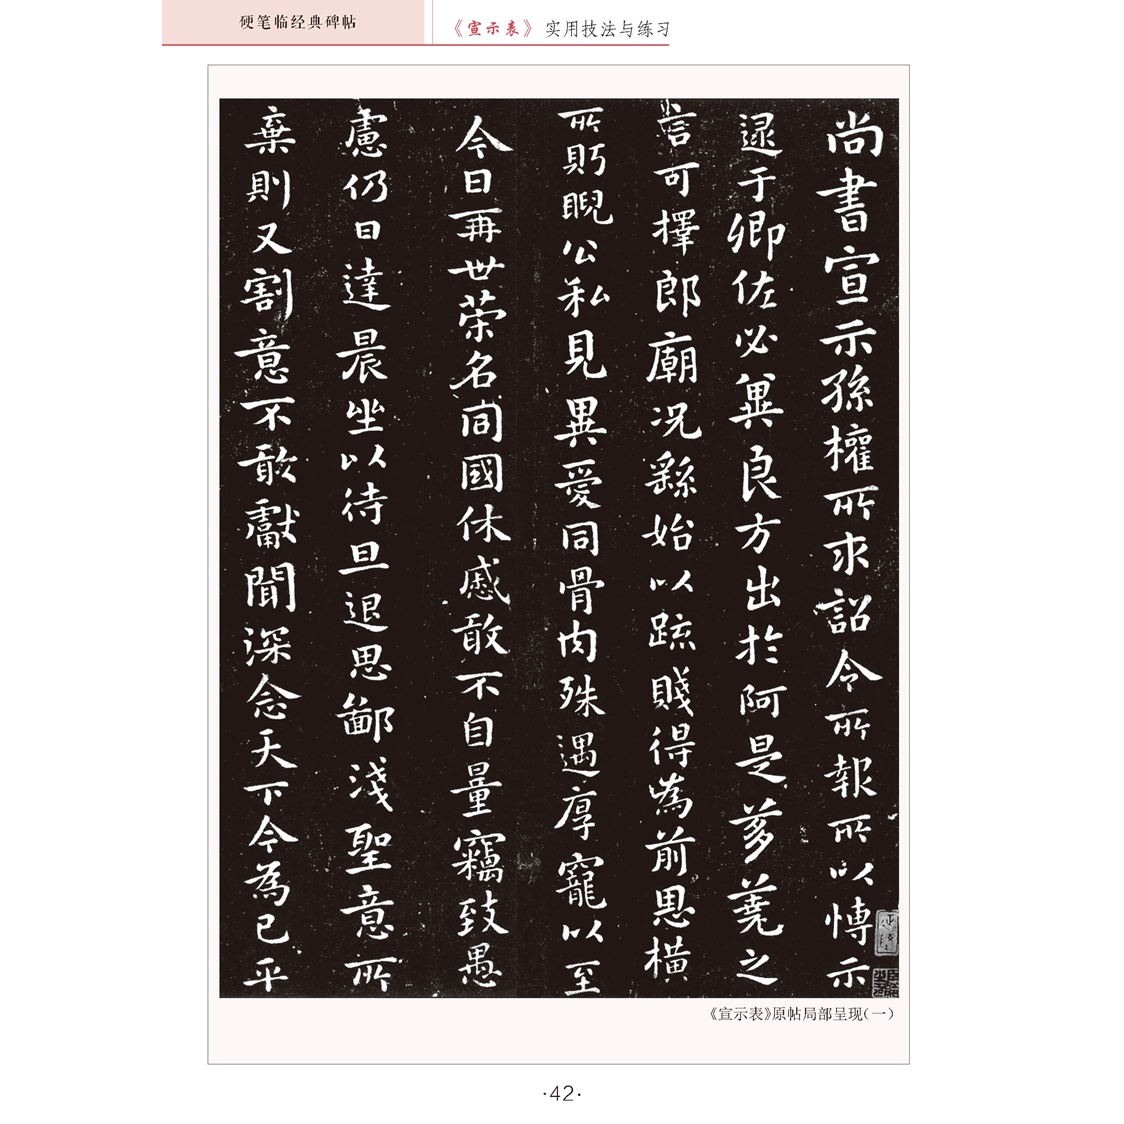 硬笔临经典碑帖
《宣示表》实用技法与练习
尚書宣示孫權所求詔令所報所以慱示
逯于卿佐必冀良方出於阿是芻蕘之
言可擇郎廟況繇始以疏賤得為前恩橫
所䝨睨公私見異愛同骨肉殊遇厚寵以至
今日再世荣名同國休慼敢不自量竊致愚
慮仍日達晨坐以待旦退思鄙淺聖意所
棄則又割意不敢獻聞深念天下今為已平
《宣示表》原帖局部呈现(一)
·42·